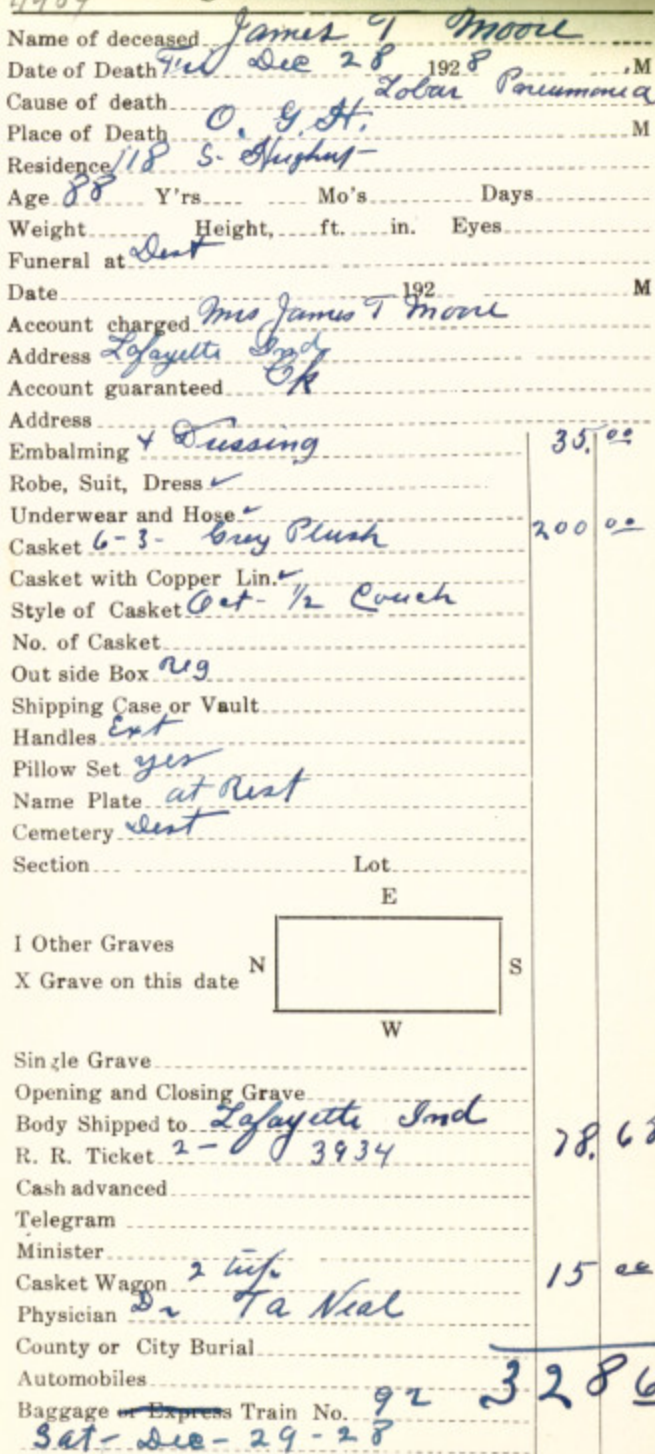 Name of deceased James T Moore
Date of Death Fri Dec 28 1928 M
Cause of death Lobar Pneumonia
Place of Death O. G. H. M
Residence 118 S.
Age 88 Y'rs Mo's Days
Weight Height, ft. in. Eyes
Funeral at Dest
Date 192 M
Account charged Mrs James T Moore
Address Lafayette Ind
Account guaranteed Ok
Address
Embalming + Dressing 35.00
Robe, Suit, Dress ✓
Underwear and Hose ✓
Casket 6-3- Grey Plush 200 00
Casket with Copper Lin. ✓
Style of Casket Oct- 1/2 Couch
No. of Casket
Out side Box Reg
Shipping Case or Vault
Handles Ext
Pillow Set yes
Name Plate at Rest
Cemetery Dest
Section Lot
E
I Other Graves
N S
X Grave on this date
W
Single Grave
Opening and Closing Grave
Body Shipped to Lafayette Ind
R. R. Ticket 2- 3934 78.68
Cash advanced
Telegram
Minister
Casket Wagon 2 15 00
Physician Dr Ta Neal
County or City Burial
Automobiles 3286
Baggage or Express Train No. 92
Sat- Dec- 29-28